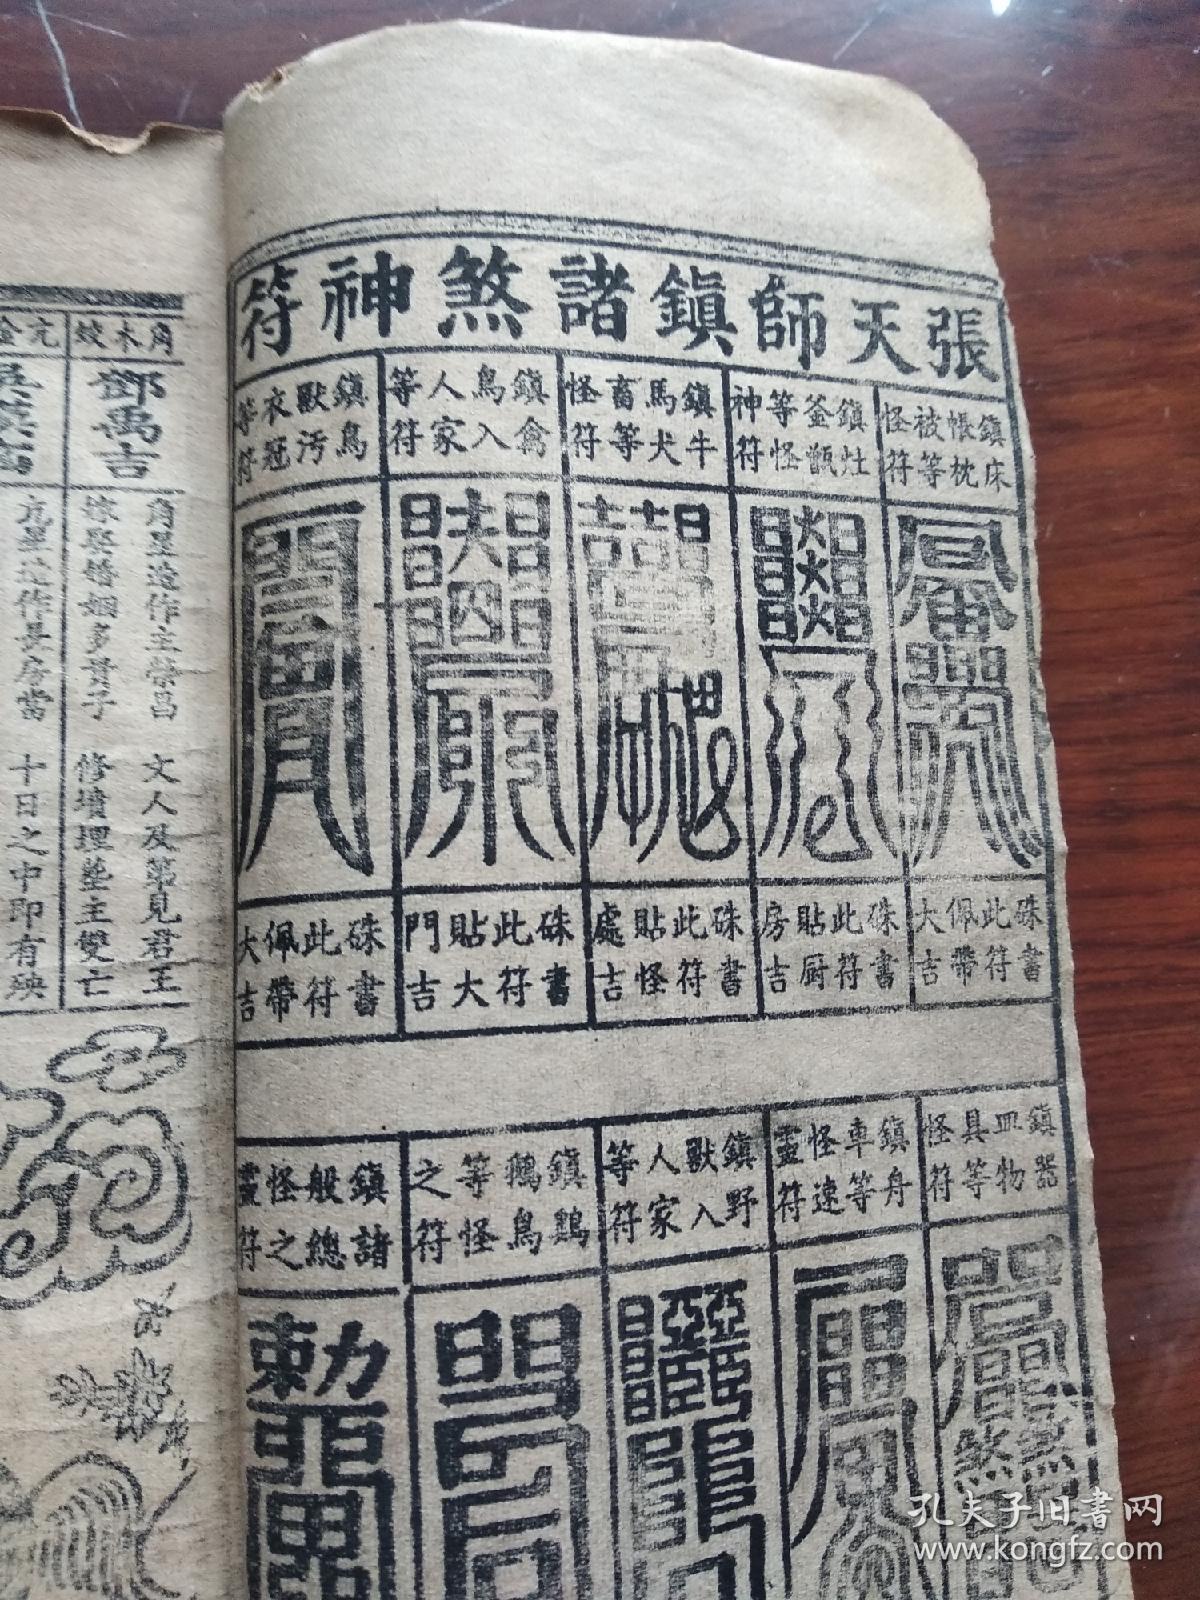 張天師鎮諸煞神符
鎮床
帳枕
被等
怪符
硃書
此符
佩帶
大吉
鎮灶
釜甑
等怪
神符
硃書
此符
貼厨
房吉
鎮牛
馬犬
畜等
怪符
硃書
此符
貼怪
處吉
鎮禽
鳥入
人家
等符
硃書
此符
貼大
門吉
鎮鳥
獸污
衣冠
等符
硃書
此符
佩帶
大吉
鎮器
皿物
具等
怪符
鎮舟
車等
怪速
靈符
鎮野
獸入
人家
等符
鎮鷄
鵝鳥
等怪
之符
鎮諸
般總
怪之
靈符
勅
角木蛟
鄧禹吉
角星造作主榮昌
文人及第見君王
嫁娶婚姻多貴子
修墳埋塟主雙亡
亢金
亢星造作長房當
十日之中即有殃
孔夫子旧書网
www.kongfz.com